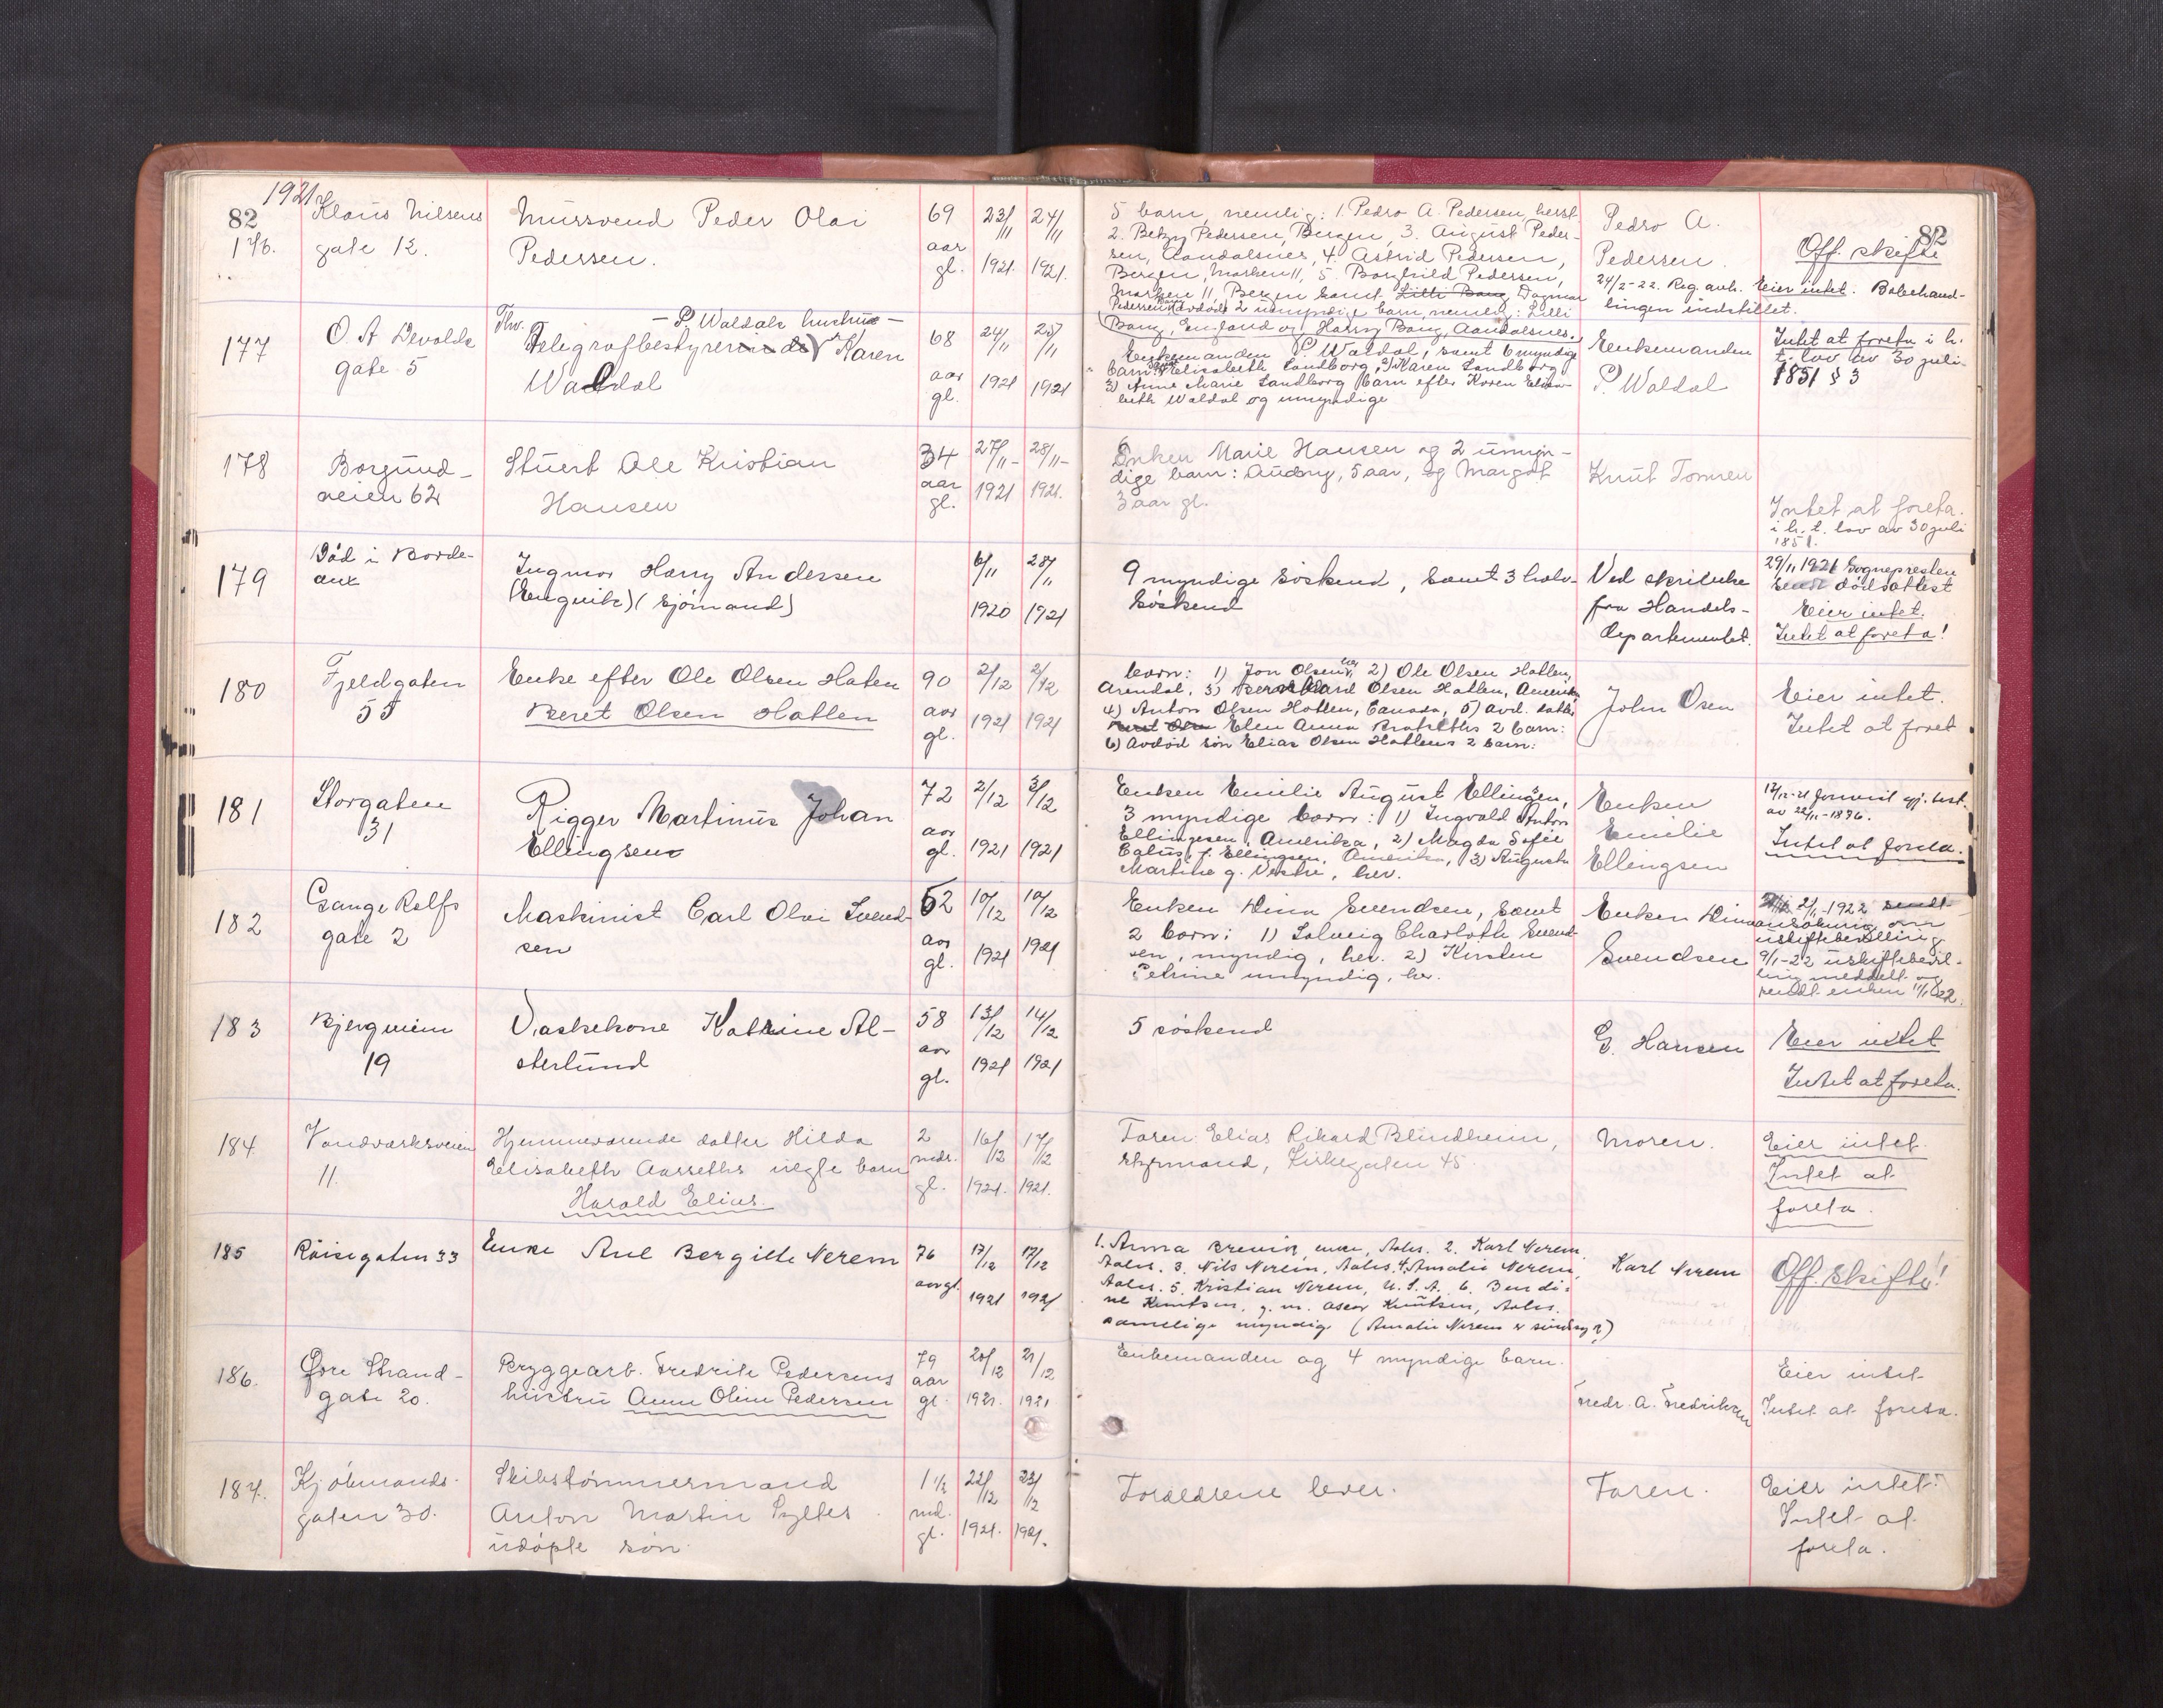 1921
82
82
176.
Klaus Nilsens
gate 12.
Mursvend Peder Olai
Pedersen.
69
aar
gl.
23/11
1921.
24/11
1921.
5 barn, nemlig: 1. Pedro A. Pedersen, herst.
2. Betzy Pedersen, Bergen, 3. August Peder-
sen, Aandalsnes, 4. Astrid Pedersen,
Bergen, Marken 11, 5. Borghild Pedersen,
Marken 11 Bergen samt Lilli Bang Dagmar
Pedersen Bang (avdød) 2 umyndige barn, nemlig: Lilli
Bang, England og Harry Bang, Aandalsnes.
Pedro A.
Pedersen.
Off. skifte
24/2-22. Reg. avh. Eier intet. Bobehand-
lingen indstillet.
177
O. A Devolds
gate 5
Thv. — P. Waldals hustru —
Telegrafbestyrerinde Karen
Waldal
68
aar
gl.
24/11
1921
25/11
1921
Enkemanden P. Waldal, samt 6 myndige
barn: 1) Elisabeth Landborg, 2) Karen Landborg
3) Anne Marie Landborg barn efter Karen Elisa-
beth Waldal og umyndige
Enkemanden
P. Waldal
Intet at foreta i h.
t. lov av 30 juli
1851 § 3
178
Borgund-
veien 62
Stuert Ole Kristian
Hansen
34
aar
gl.
27/11-
1921
28/11-
1921.
Enken Marie Hansen og 2 umyn-
dige barn: Audny, 5 aar, og Margot
3 aar gl.
Knut Tomren
Intet at foreta.
i h. t. lov av 30 juli
1851.
179
Død i Borde-
aux
Ingmar Harry Andersen
(Enquite) (sjømand)
6/11
1920
28/11
1921
9 myndige søskend, samt 3 halv-
søskend
Ved skrivelse
fra Handels-
departementet.
29/11 1921 Sognepresten
sendt dødsattest
Eier intet.
Intet at foreta!
180
Fjeldgaten
55
Enke efter Ole Olsen Haten
Beret Olsen Hatlen
90
aar
gl.
2/12
1921
2/12
1921
barn: 1) Jon Olsen, her, 2) Ole Olsen Hatlen,
Arendal, 3) Bernhard Olsen Hatlen, Amerika,
4) Anton Olsen Hatlen, Canada, 5) avd. datter
Elen Anna Bratseths 2 barn:
6) Avdød søn Elias Olsen Hatlens 2 barn:
John Osen
Eier intet.
Intet at foret
181
Storgaten
31
Rigger Martinus Johan
Ellingsen
72
aar
gl.
2/12
1921
3/12
1921
Enken Emilie August Ellingsen,
3 myndige barn: 1) Ingvald Anton
Ellingsen, Amerika, 2) Magda Sofie
f. Ellingsen, Amerika, 3) Augusta
Martine g. Vestre, her.
Enken
Emilie
Ellingsen
12/12-21 forevist gj. test.
av 22/11-1896.
Intet at foreta.
182
Gange Rolfs
gate 2
Maskinist Carl Olai Svend-
sen
62
aar
gl.
10/12
1921
10/12
1921
Enken Dina Svendsen, samt
2 barn: 1) Solveig Charlotte Svend-
sen, myndig, her. 2) Kirsten
Petrine umyndig, her.
Enken Dina
Svendsen
2/1-1922 sendt
ansøkning om
uskiftebevilling
9/1-22 uskiftebevil-
ling meddelt og
sendt enken 11/1 22.
183
Bjergveien
19
Vaskekone Katrine Al-
sterlund
58
aar
gl.
13/12
1921
14/12
1921
5 søskend
G. Hansen
Eier intet
Intet at foreta.
184.
Vandværksveien
11.
Hjemmeværende datter Hilda
Elisabeth Aarseths uegte barn
Harald Elias.
2
mdr.
gl.
16/12
1921.
17/12
1921.
Faren Elias Rikard Blindheim,
styrmand, Kirkegaten 45.
Moren.
Eier intet.
Intet at
foreta.
185
Røisegaten 33
Enke Ane Bergitte Nerem
76
aar gl.
17/12
1921
17/12
1921
1. Anna Brevik, enke, Aales. 2. Karl Nerem,
Aales. 3. Nils Nerem, Aales. 4. Amalie Nerem,
Aales. 5. Kristian Nerem, U.S.A. 6. Bendi-
ne Knutsen, g. m. Oscar Knutsen, Aales.
samtlige myndig (Amalie Nerem er sindsyg?)
Karl Nerem
Off. skifte!
186.
Øvre Strand-
gate 20.
Bryggearb. Fredrik Pedersens
hustru Anne Oline Pedersen
79
aar
gl.
20/12
1921.
21/12
1921
Enkemanden og 4 myndige barn.
Fredr. A. Fredriksen
Eier intet
Intet at foreta.
187.
Kjøbmands-
gaten 30.
Skibstømmermand
Anton Martin Sylles
udøpte søn.
1 1/2
md.
gl.
22/12
1921.
23/12
1921.
Forældrene lever.
Faren.
Eier intet.
Intet at
foreta.